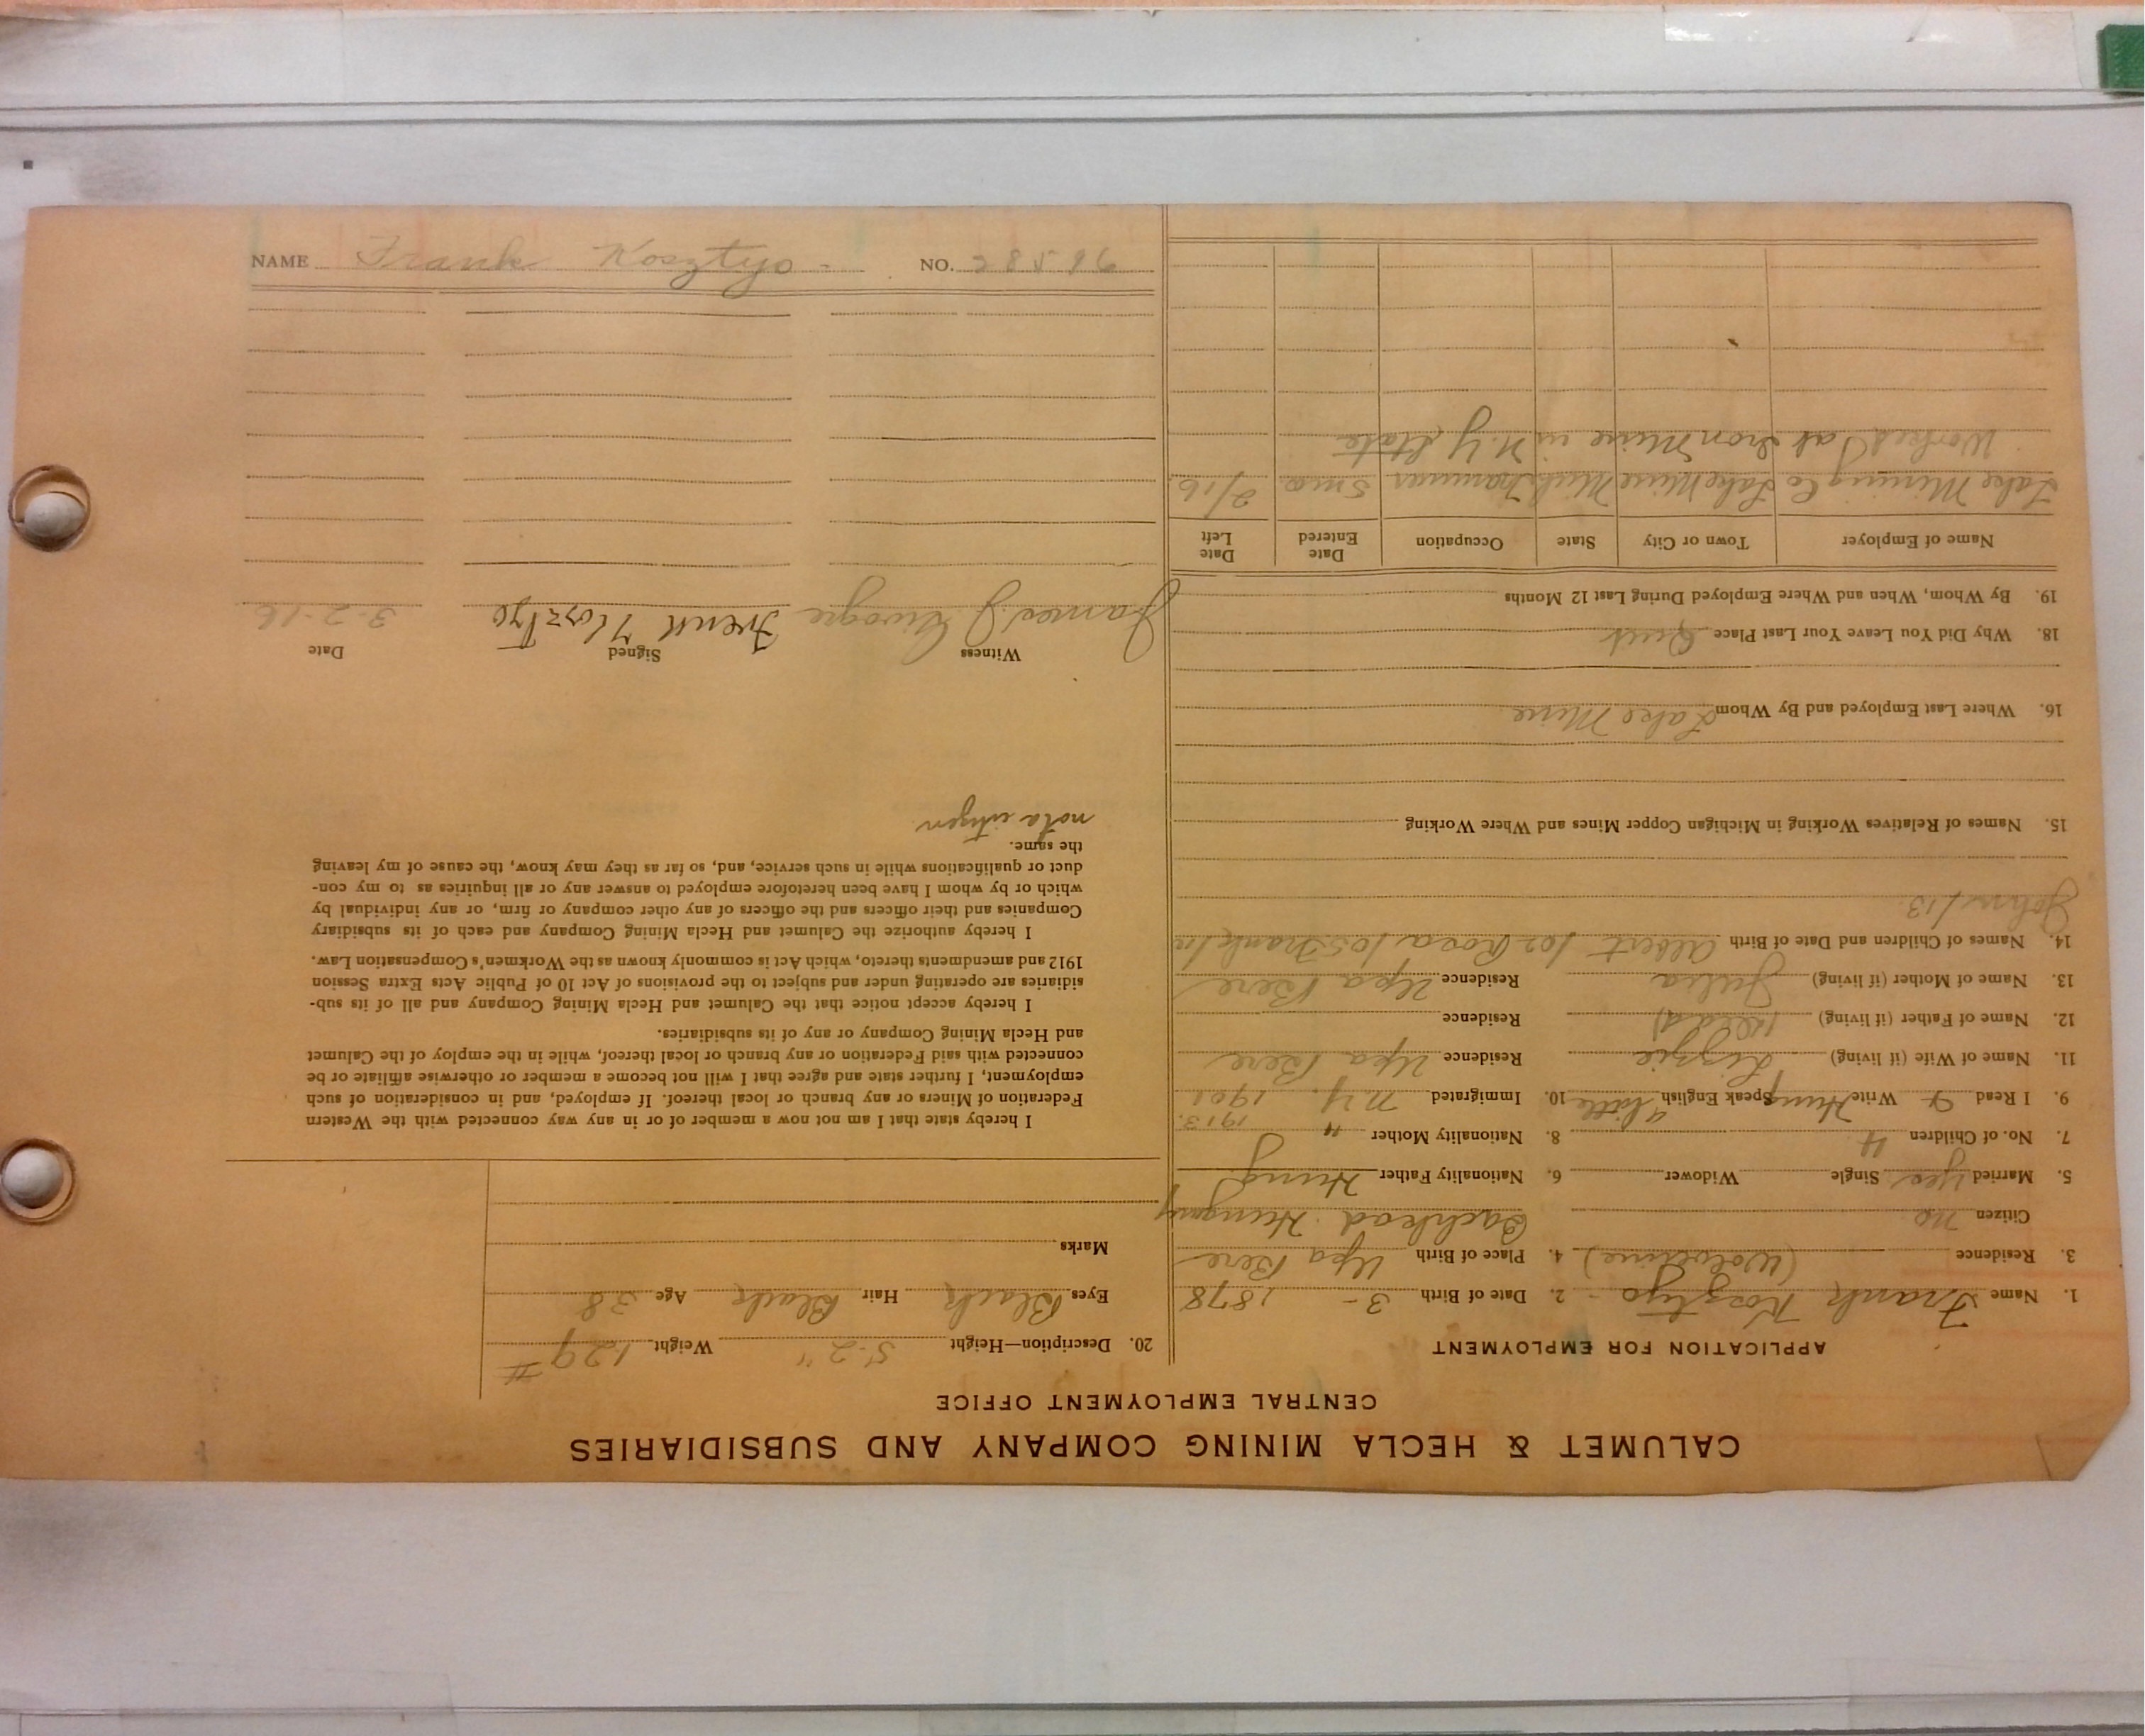 CALUMET & HECLA MINING COMPANY AND SUBSIDIARIES
CENTRAL EMPLOYMENT OFFICE
APPLICATION FOR EMPLOYMENT
1. Name Frank Kosztyo - 2. Date of Birth 3 - 1878
3. Residence (Wolverine) 4. Place of Birth Upa Bere
Citizen no Hungary
5. Married yes Single Widower 6. Nationality Father Hung
7. No. of Children 4 8. Nationality Mother " 1913.
9. I Read & Write Hung Speak English little 10. Immigrated N.Y. 1901
11. Name of Wife (if living) Lizzie Residence Upa Bere
12. Name of Father (if living) Residence
13. Name of Mother (if living) Julia Residence Upa Bere
14. Names of Children and Date of Birth Albert /02 Rosa /05 Frank
John /13.
15. Names of Relatives Working in Michigan Copper Mines and Where Working
16. Where Last Employed and By Whom Lake Mine
18. Why Did You Leave Your Last Place Quit
19. By Whom, When and Where Employed During Last 12 Months
Name of Employer Town or City State Occupation Date Entered Date Left
Lake Mining Co Lake Mine Mich Trammer 5 mo 2/16
Worked at Iron Mine in N.Y State
20. Description—Height 5'-2" Weight 129 #
Eyes Black Hair Black Age 38
Marks
I hereby state that I am not now a member of or in any way connected with the Western
Federation of Miners or any branch or local thereof. If employed, and in consideration of such
employment, I further state and agree that I will not become a member or otherwise affiliate or be
connected with said Federation or any branch or local thereof, while in the employ of the Calumet
and Hecla Mining Company or any of its subsidiaries.
I hereby accept notice that the Calumet and Hecla Mining Company and all of its sub-
sidiaries are operating under and subject to the provisions of Act 10 of Public Acts Extra Session
1912 and amendments thereto, which Act is commonly known as the Workmen's Compensation Law.
I hereby authorize the Calumet and Hecla Mining Company and each of its subsidiary
Companies and their officers and the officers of any other company or firm, or any individual by
which or by whom I have been heretofore employed to answer any or all inquiries as to my con-
duct or qualifications while in such service, and, so far as they may know, the cause of my leaving
the same.
not a citizen
Witness Signed Date
James J Frenk Kosztyo 3-2-16
NAME Frank Kosztyo - NO. 28596